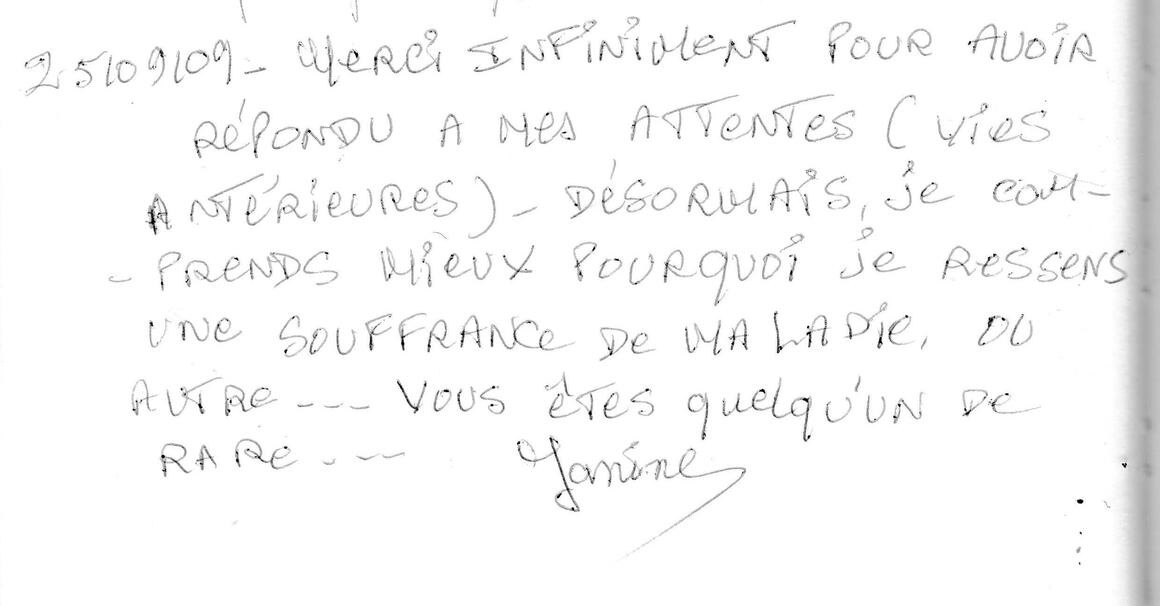 25/09/09 - Merci INFINIMENT POUR AVOIR
RÉPONDU A MES ATTENTES (VIES
ANTÉRIEURES) - DÉSORMAIS, je COM-
- PRENDS MIEUX POURQUOI je RESSENS
UNE SOUFFRANCE DE MALADIE, OU
AUTRE --- VOUS ÊTES quelqu'UN DE
RARE ---
Janine